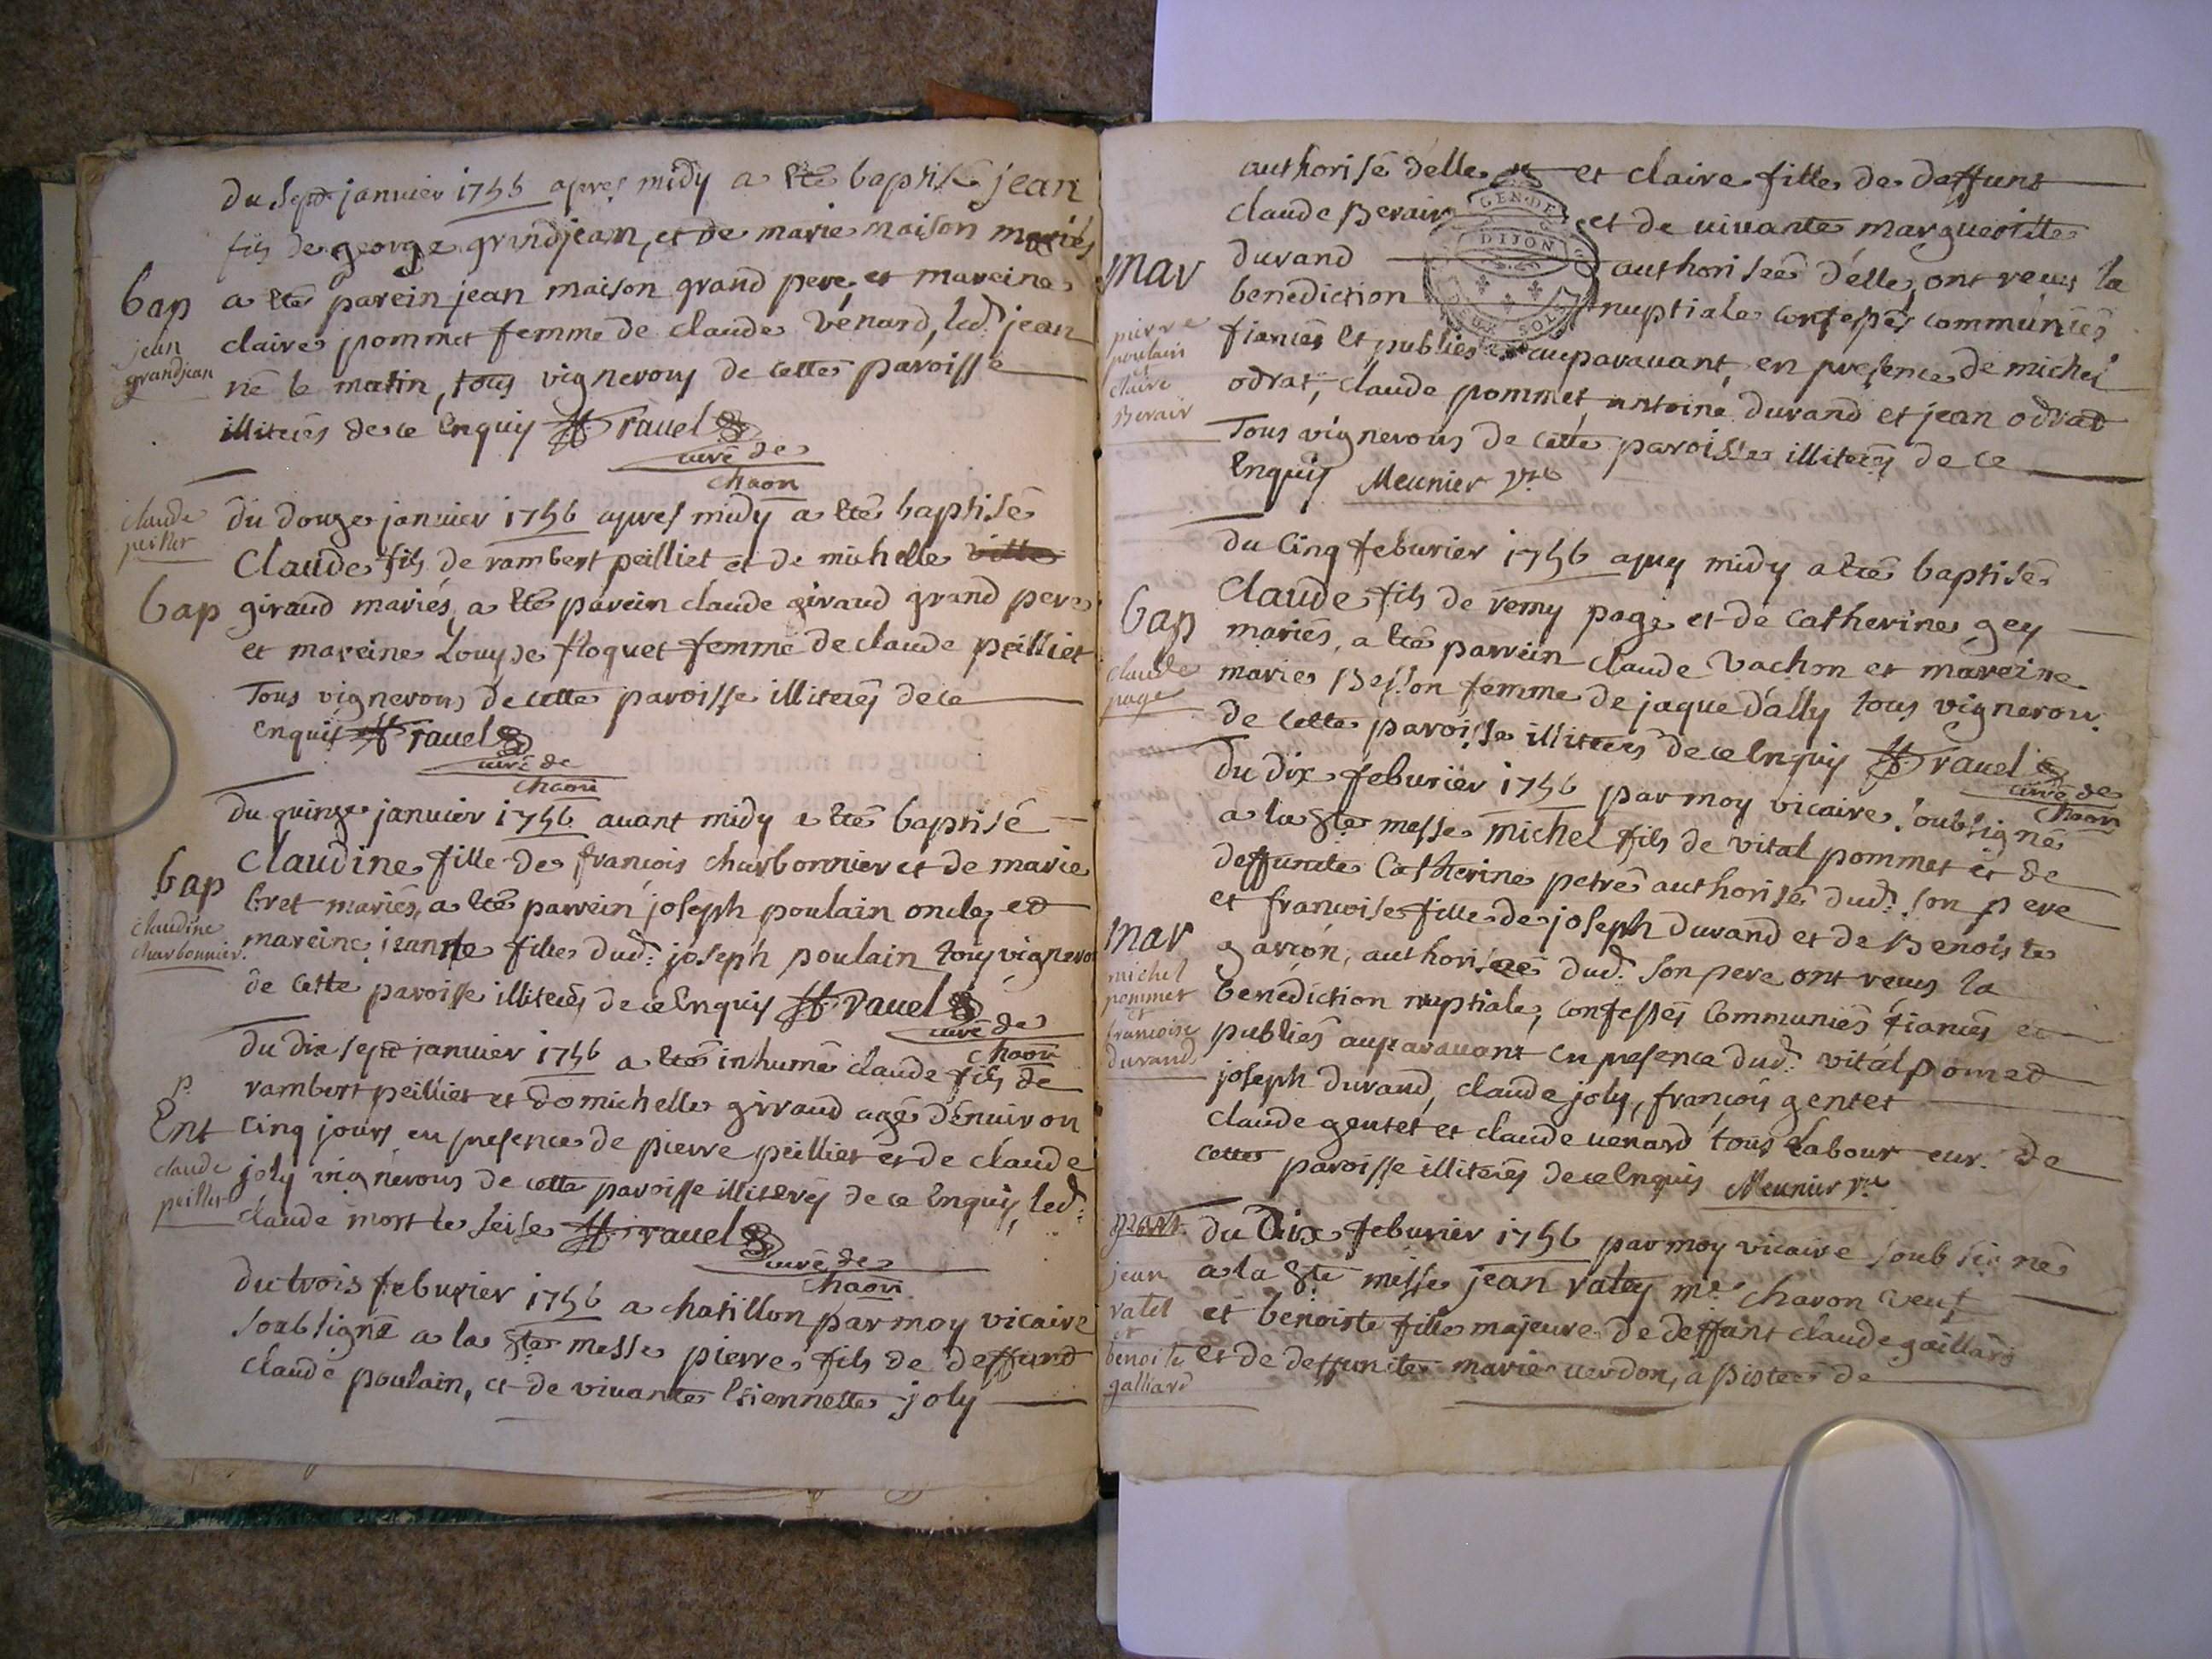 du sept janvier 1756 apres midy a eté baptisé jean
fils de george grandjean, et de marie maison mariés
bap
a eté parein jean maison grand pere, et mareine
jean
grandjean
claire pommet femme de claude Vénard, led. jean
né le matin, tous vignerons de cette paroisse
illiterés de ce Enquis ravel
curé de
chaon
claude
peillet
du douze janvier 1756 apres midy a eté baptisé
Claude fils de rambert peilliet et de michelle
bap
giraud mariés, a eté parein claude giraud grand pere
et mareine Louyse floquet femme de claude peilliet
Tous vignerons de cette paroisse illiterés de ce
Enquis ravel
curé de
chaon
du quinze janvier 1756 avant midy a eté baptisé
bap
Claudine fille de francois charbonnier et de marie
claudine
charbonnier
bret mariés, a eté parrein joseph poulain oncle, et
mareine jeanne fille dud. joseph poulain touy vignero
de cette paroisse illiterés de ce Enquis ravel
curé de
chaon
du dix sept janvier 1756 a eté inhumé claude fils de
p.
rambert peilliet et de michelle giraud agé dénviron
Ent
cinq jours en presence de pierre peilliet et de claude
claude
peillet
joly vignérons de cette paroisse illiterés de ce Enquis, led.
claude mort le seise ravel
curé de
chaon
du trois feburier 1756 a chatillon par moy vicaire
soubsigné a la ste messe pierre fils de deffunt
claude poulain, et de vivante Etiennette joly
authorisé d'elle et claire fille de deffunt
claude Berair et de vivante margueritte
mar
durand authorisée d'elle, ont receus la
GEN. DE
DIJON
SOLS
benediction nuptiale confessés communiés
pierre
poulain
et
claire
Berair
fiancés et publiés auparavant, en presence de michel
odrat, claude pommet, antoine durand et jean odrat
Tous vignerons de cette paroisse illiterés de ce
Enquis Meunier vre
du Cinq feburier 1756 apres midy a eté baptisé
Claude fils de remy page et de Catherine gey
bap
mariés, a eté parrein claude Vachon et mareine
claude
page
marie Besson femme de jaque d'ally tous vignerons
de cette paroisse illiterés de ce Enquis ravel
curé de
chaon
du dix feburier 1756 par moy vicaire soubsigné
a la ste messe michel fils de vital pommet et de
deffunte Catherine petré authorisé dud. son pere
et francoise fille de joseph durand et de Benoiste
mar
garcon, authorisée dud. son pere ont receus la
michel
pommet
et
francoise
durand
benédiction nuptiale, confessés communiés fiancés et
publiés auparavant en presence dud. vital pomet
joseph durand, claude joly, francois gentet
claude gentet et claude venard tous Labour eur. de
cette paroisse illiterés de ce Enquis Meunier vre
du dix feburier 1756 par moy vicaire soubsigné
jean
valet
et
benoite
galliard
a la ste messe jean valey me charon veuf
et benoiste fille majeure de deffunt claude gaillard
et de deffuncte marie verdon, assistee de